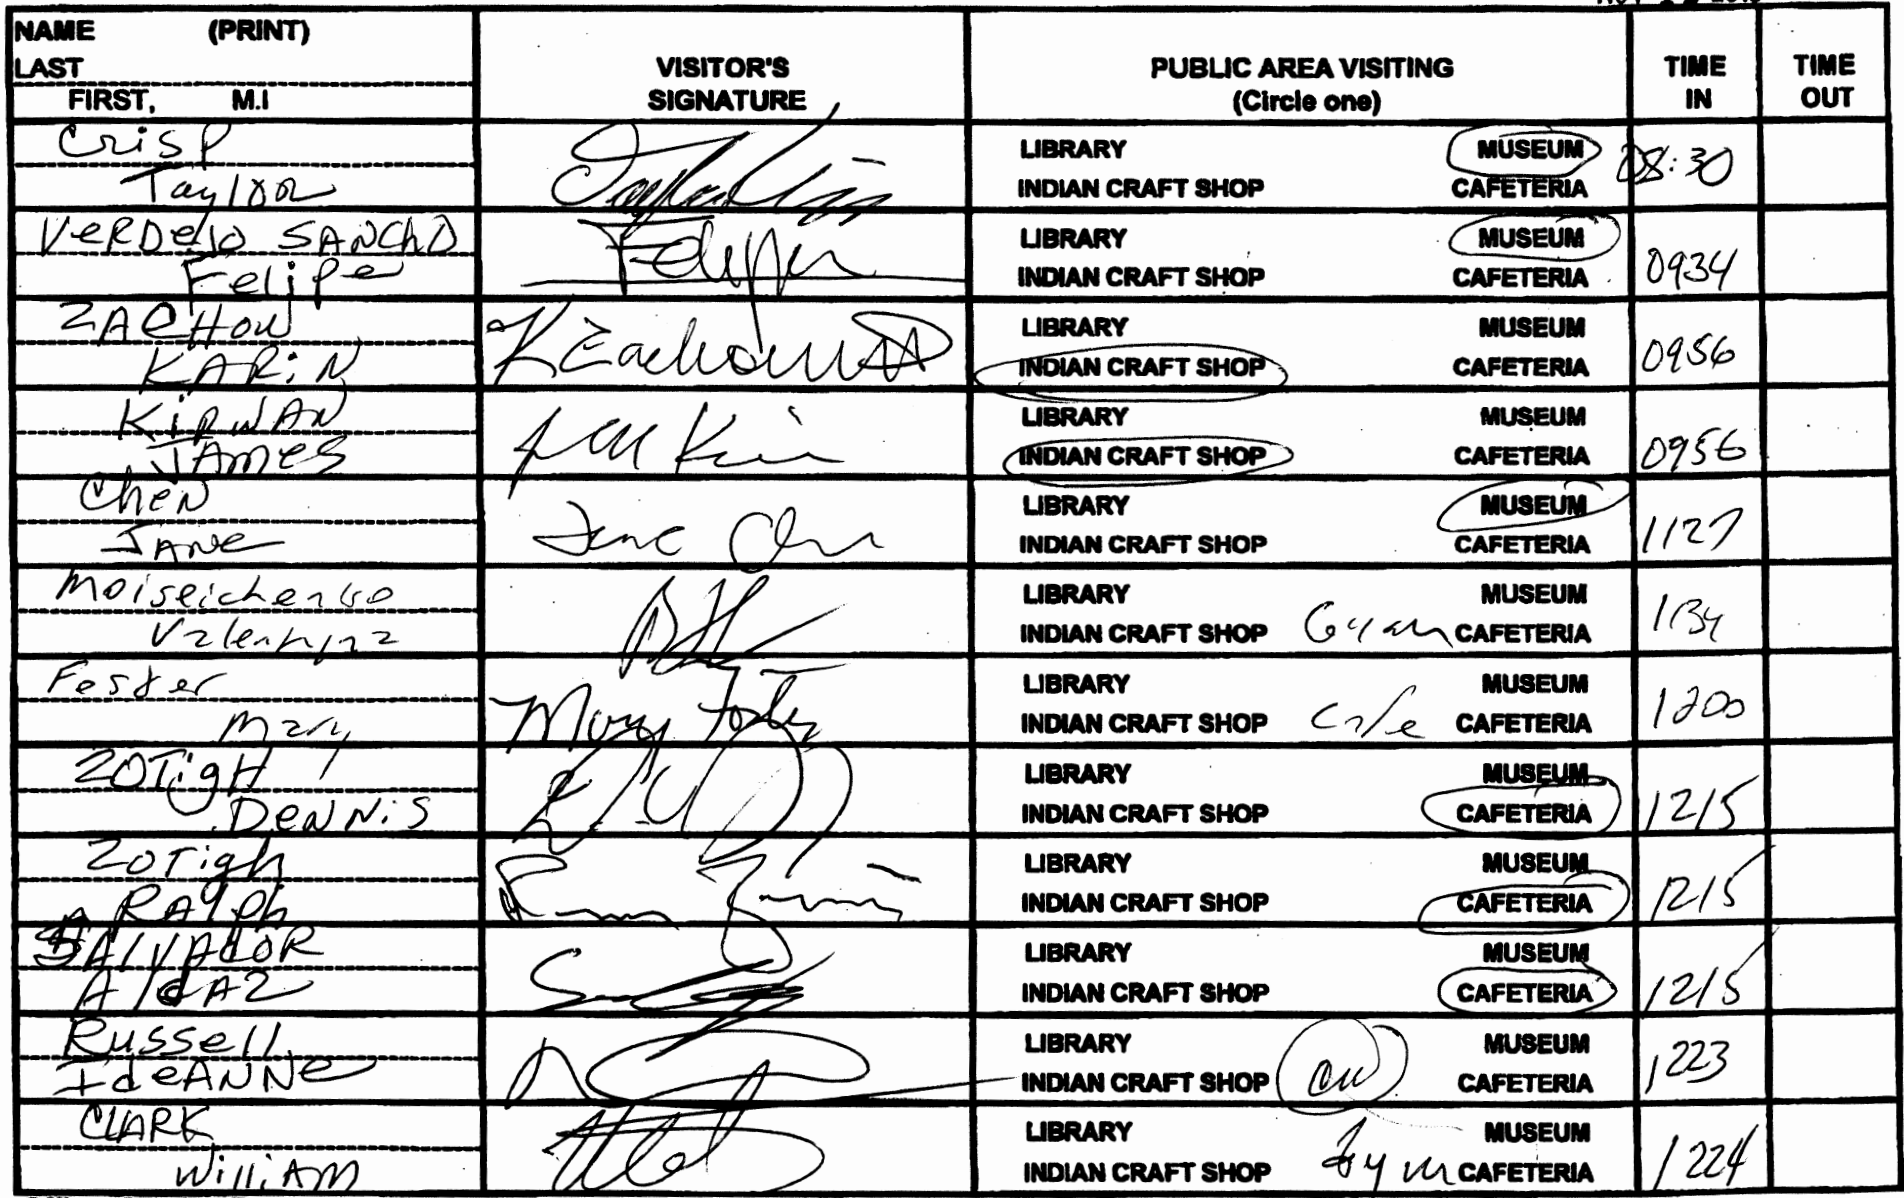 NAME (PRINT)
LAST
FIRST, M.I
VISITOR'S
SIGNATURE
PUBLIC AREA VISITING
(Circle one)
TIME
IN
TIME
OUT
Crisp
Taylor
LIBRARY MUSEUM
INDIAN CRAFT SHOP CAFETERIA
08:30
VERDeJO SANCHO
Felipe
LIBRARY MUSEUM
INDIAN CRAFT SHOP CAFETERIA
0934
ZACHOW
KARiN
KZachow
LIBRARY MUSEUM
INDIAN CRAFT SHOP CAFETERIA
0956
KiRWAN
JAMES
LIBRARY MUSEUM
INDIAN CRAFT SHOP CAFETERIA
0956
CheN
JANe
Jane Chen
LIBRARY MUSEUM
INDIAN CRAFT SHOP CAFETERIA
1127
Moiseichenko
Valentina
LIBRARY MUSEUM
INDIAN CRAFT SHOP CAFETERIA
1134
Foster
Mary
Mary Foster
LIBRARY MUSEUM
INDIAN CRAFT SHOP Cafe CAFETERIA
1200
ZOTigH
DeNNiS
LIBRARY MUSEUM
INDIAN CRAFT SHOP CAFETERIA
1215
ZoTigh
RAlph
LIBRARY MUSEUM
INDIAN CRAFT SHOP CAFETERIA
1215
SAlVAdOR
AldAZ
LIBRARY MUSEUM
INDIAN CRAFT SHOP CAFETERIA
1215
Russell
IdeANNe
LIBRARY MUSEUM
INDIAN CRAFT SHOP CAFETERIA
1223
CLARK
WilliAM
LIBRARY MUSEUM
INDIAN CRAFT SHOP Gym CAFETERIA
1224